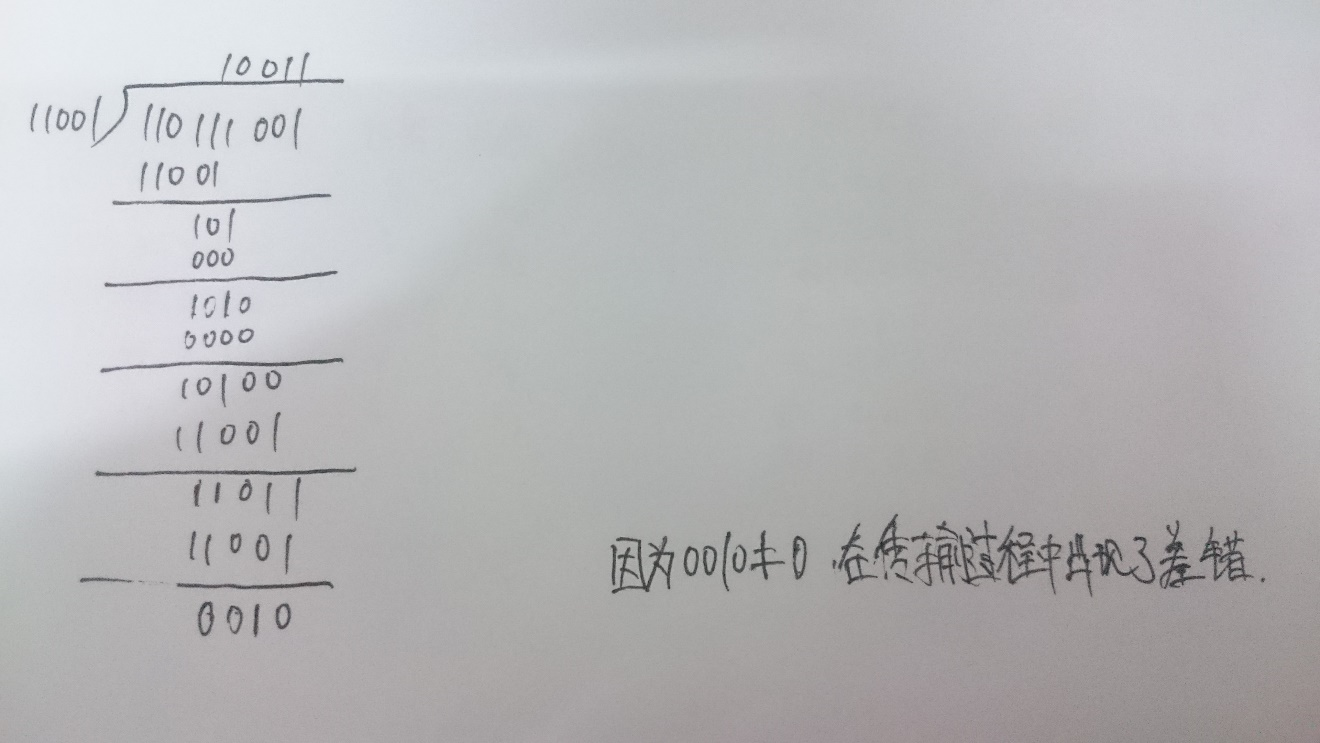 10011
11001 110111001
11001
101
000
1010
0000
10100
11001
11011
11001
0010
因为0010≠0 在传输过程中出现了差错.